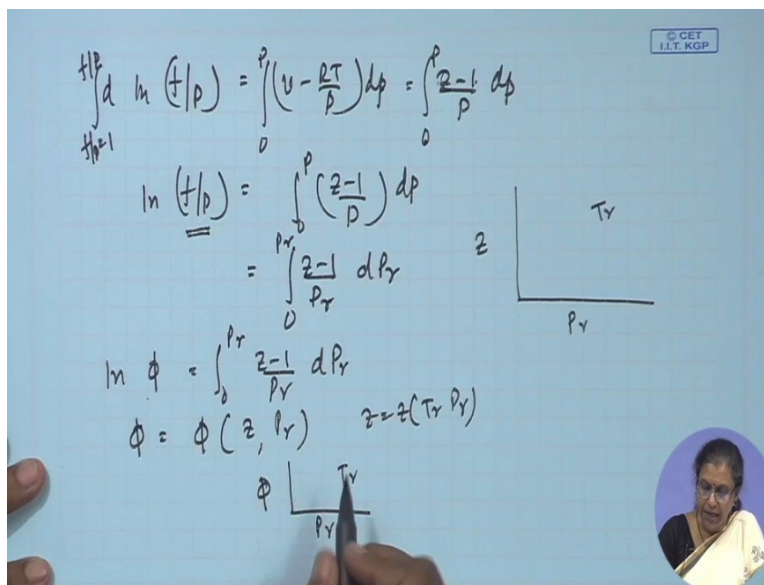 © CET
I.I.T. KGP
∫_{f/p=1}^{f/p} d ln (f/p) = ∫_0^P (v - RT/P) dp = ∫_0^P z-1/P dp
ln (f/p) = ∫_0^P (z-1/P) dp
= ∫_0^{Pr} z-1/Pr dPr
z Tr
Pr
ln ϕ = ∫_0^{Pr} z-1/Pr dPr
ϕ = ϕ (z, Pr) z = z (Tr Pr)
ϕ Tr
Pr